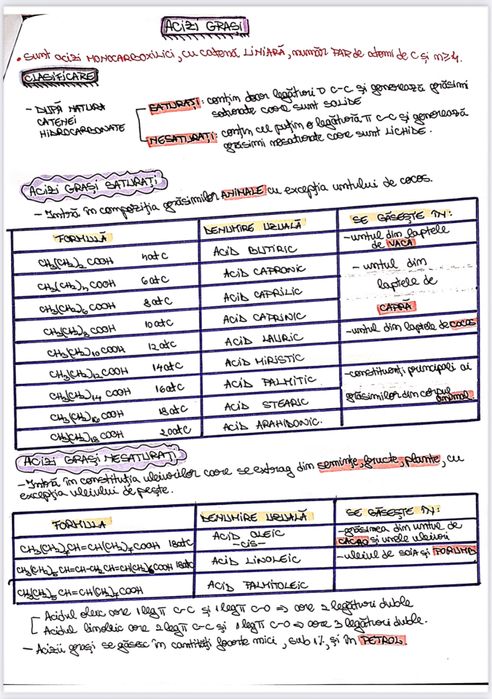 ACIZI GRAȘI
• Sunt acizi MONOCARBOXILICI, cu catenă LINIARĂ, număr PAR de atomi de C și n≥4.
CLASIFICARE
- DUPĂ NATURA CATENEI HIDROCARBONATE
SATURAȚI: conțin doar legături σ C-C și generează grăsimi
saturate care sunt SOLIDE
NESATURAȚI: conțin cel puțin o legătură π C-C și generează
grăsimi nesaturate care sunt LICHIDE.
ACIZI GRAȘI SATURAȚI
- Intră în compoziția grăsimilor ANIMALE cu excepția untului de cocos.
FORMULĂ DENUMIRE UZUALĂ SE GĂSEȘTE ÎN:
CH3(CH2)2COOH 4atC ACID BUTIRIC - untul din laptele de VACĂ
CH3(CH2)4COOH 6atC ACID CAPRONIC - untul din laptele de CAPRĂ
CH3(CH2)6COOH 8atC ACID CAPRILIC
CH3(CH2)8COOH 10atC ACID CAPRINIC
CH3(CH2)10COOH 12atC ACID LAURIC - untul din laptele de COCOS
CH3(CH2)12COOH 14atC ACID MIRISTIC - constituenți principali ai grăsimilor din corpul animal
CH3(CH2)14COOH 16atC ACID PALMITIC
CH3(CH2)16COOH 18atC ACID STEARIC
CH3(CH2)18COOH 20atC ACID ARAHIDONIC.
ACIZI GRAȘI NESATURAȚI
- Intră în constituția uleiurilor care se extrag din semințe, fructe, plante, cu
excepția uleiului de pește.
FORMULA DENUMIRE UZUALĂ SE GĂSEȘTE ÎN:
CH3(CH2)7CH=CH(CH2)7COOH 18atC ACID OLEIC -cis- - grăsimea din untul de CACAO și unele uleiuri
ACID LINOLEIC - uleiul de SOIA și PORUMB
ACID PALMITOLEIC
Acidul oleic are 1 leg π C-C și 1 leg π C-O ⇒ are 2 legături duble
Acidul linoleic are 2 leg π C-C și 1 leg π C-O ⇒ are 3 legături duble.
- Acizii grași se găsesc în cantități foarte mici, sub 1%, și în PETROL.